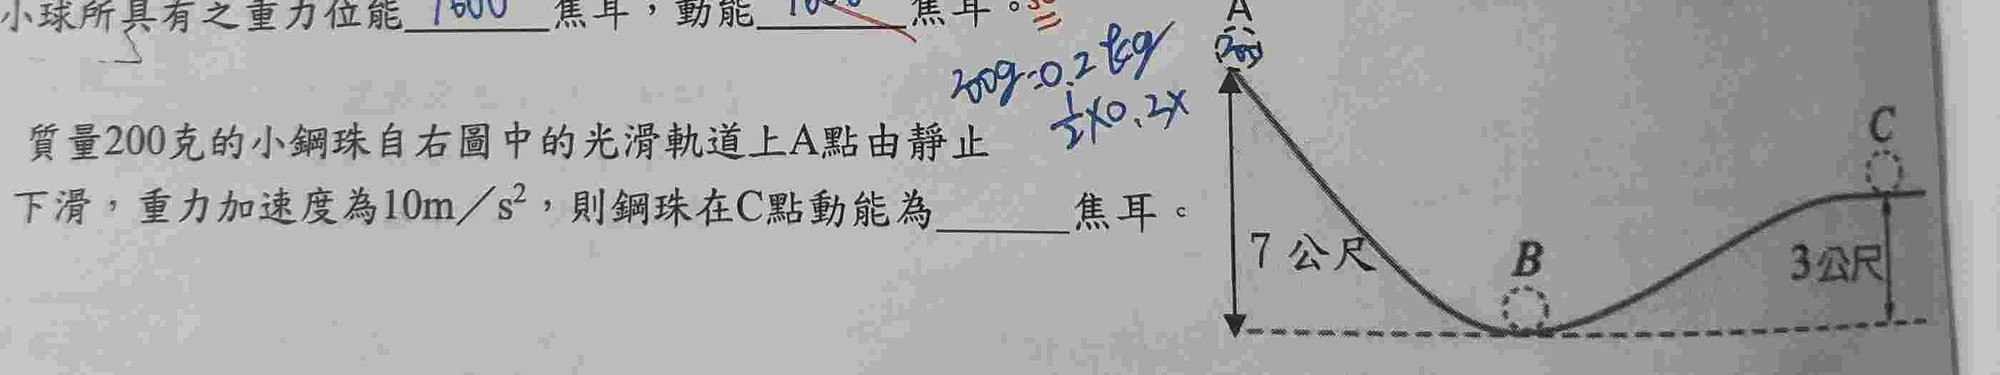 小球所具有之重力位能 1600 焦耳，動能 焦耳。
A
200g
200g=0.2kg
½×0.2×
質量200克的小鋼珠自右圖中的光滑軌道上A點由靜止
下滑，重力加速度為10m／s²，則鋼珠在C點動能為______焦耳。
C
7 公尺
B
3公尺